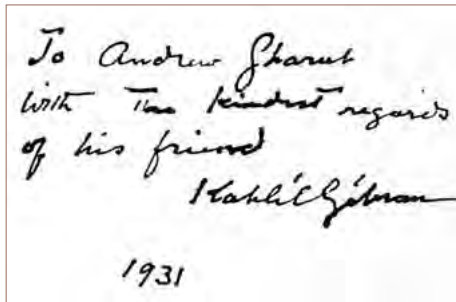 To Andrew Ghareeb
with The kindest regards
of his friend
Kahlil Gibran
1931